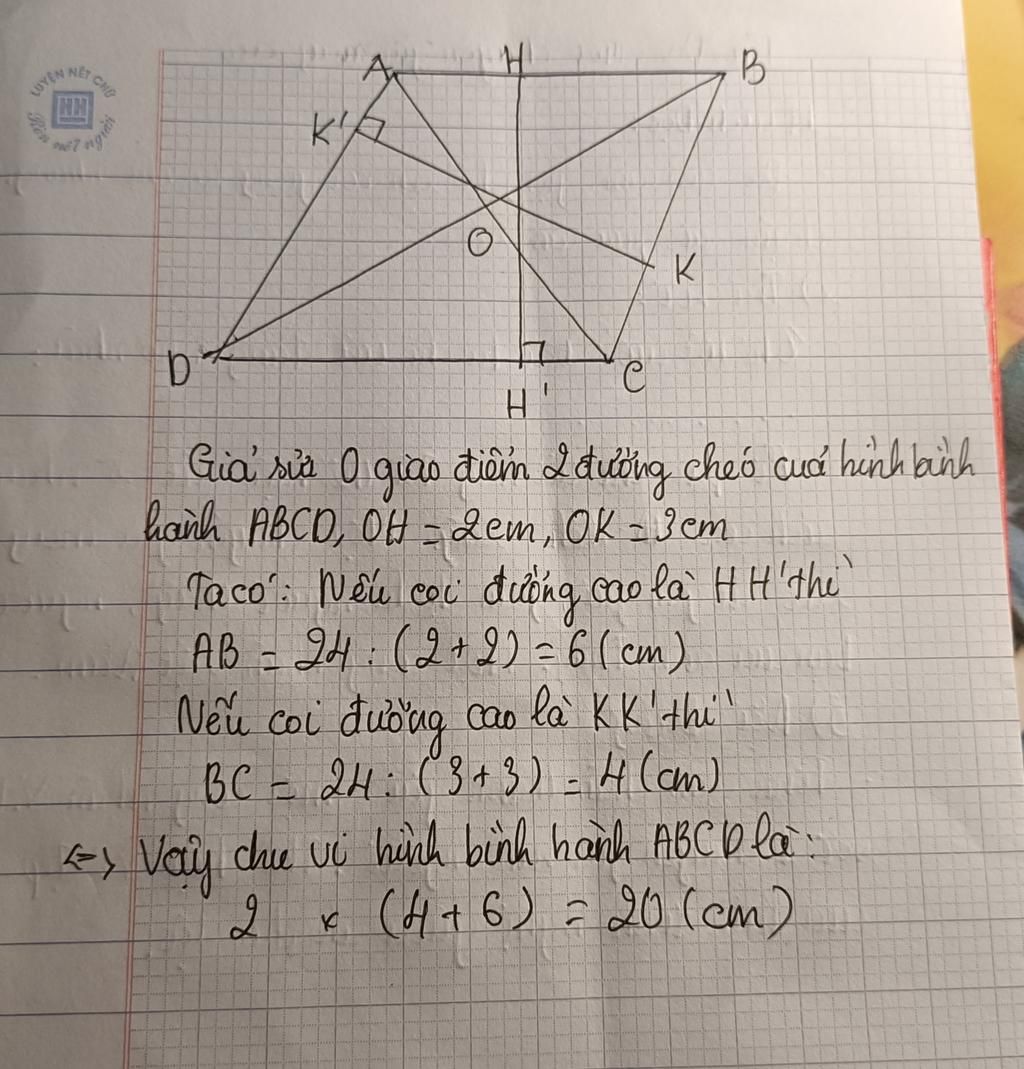 LUYỆN NÉT CHỮ
HH
Rèn nết người
A H B
K'
O
K
D
C
H'
Giả sửa O giao điểm 2 đường cheó cuả hình bình
hành ABCD, OH = 2cm, OK = 3cm
Ta có: Nếu coi đường cao là HH' thì
AB = 24 : (2+2) = 6 (cm)
Nếu coi đường cao là KK' thì
BC = 24 : (3+3) = 4 (cm)
<=> Vậy chu vi hình bình hành ABCD là:
2 x (4+6) = 20 (cm)